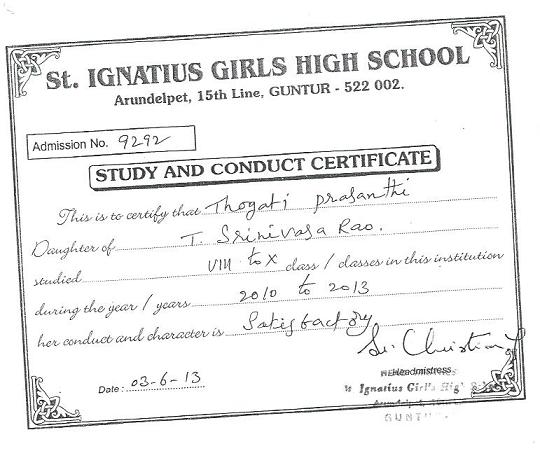 St. IGNATIUS GIRLS HIGH SCHOOL
Arundelpet, 15th Line, GUNTUR - 522 002.
Admission No. 9292
STUDY AND CONDUCT CERTIFICATE
This is to certify that Thogati Prasanthi
Daughter of T. Srinivasa Rao.
studied VIII to X class / classes in this institution
during the year / years 2010 to 2013
her conduct and character is Satisfactory
Sr. Christian
Headmistress
Date : 03-6-13
Ignatius Girl's High
GUNTU